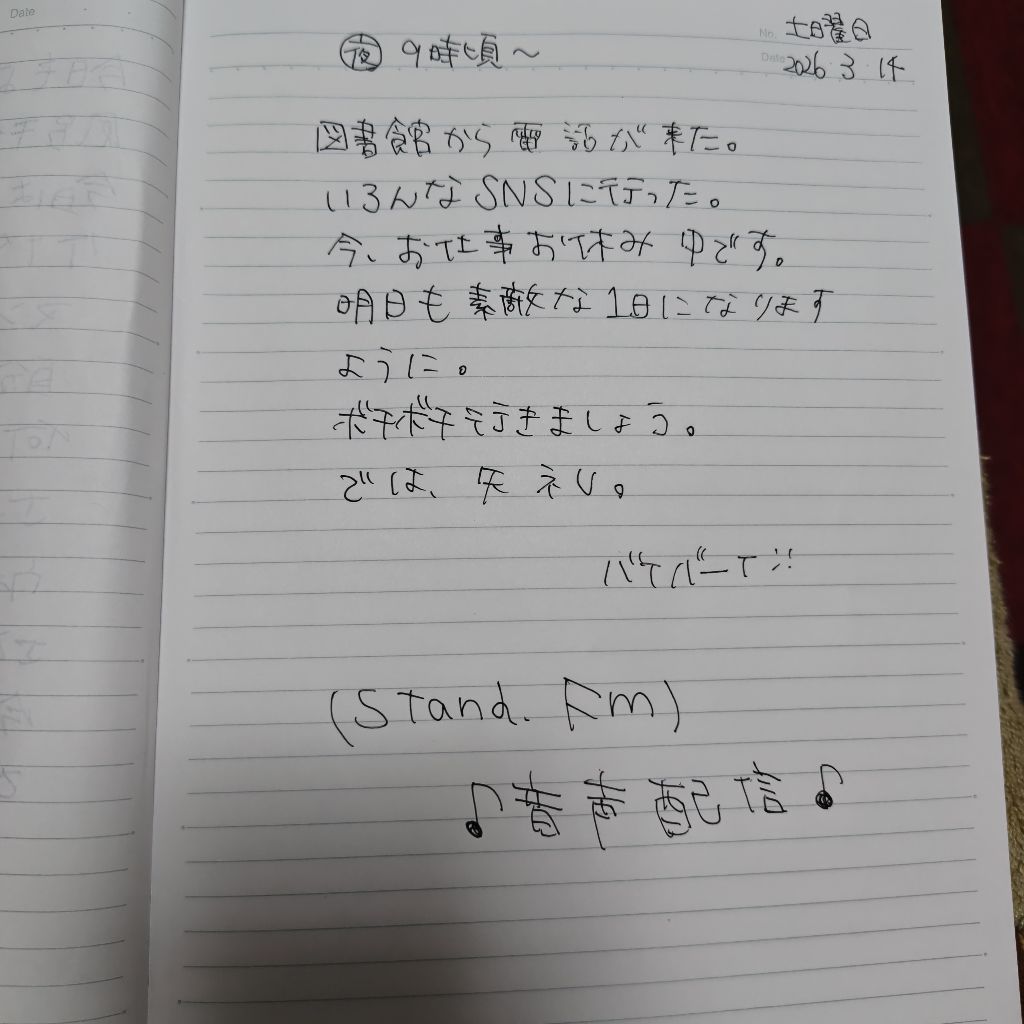 Date
夜 9時頃～
No. 土曜日
Date 2026 3 14
図書館から電話が来た。
いろんなSNSに行った。
今、お仕事お休み中です。
明日も素敵な1日になります
ように。
ボチボチ行きましょう。
では、失礼。
バイバーイ
(Stand. Fm)
♪音声配信♪